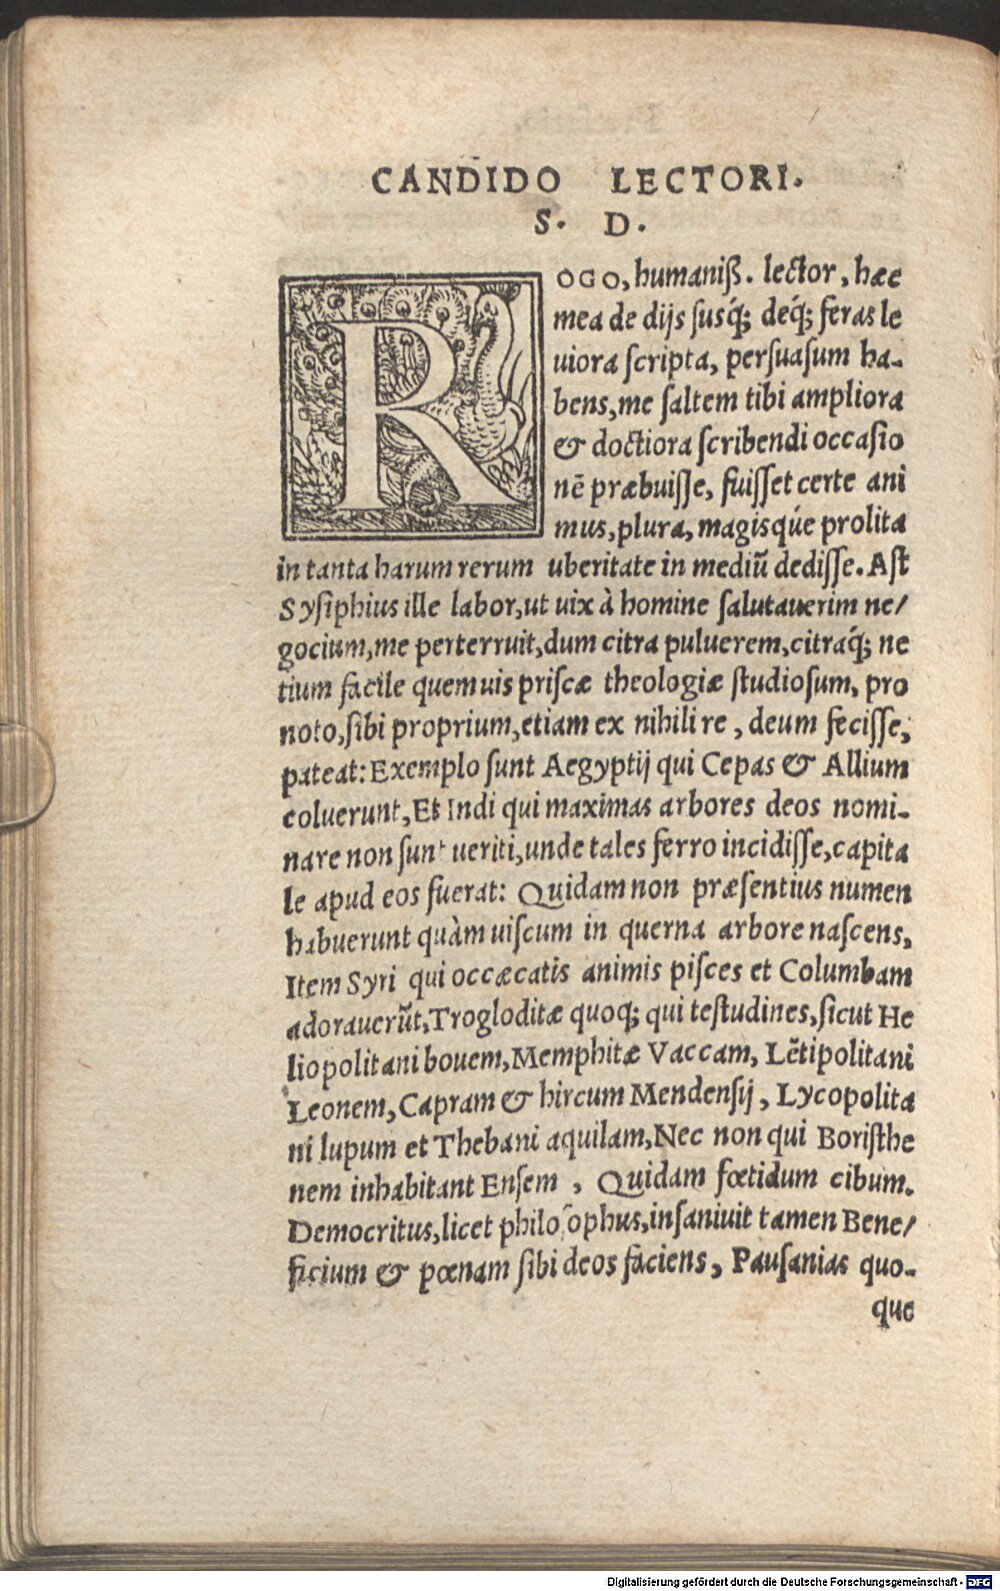 CANDIDO LECTORI.
S. D.
ROGO, humaniß. lector, hæc
mea de dijs susq́; deq́; feras le
uiora scripta, persuasum ha-
bens, me saltem tibi ampliora
& doctiora scribendi occasio
nē præbuisse, fuisset certe ani
mus, plura, magisq́ue prolita
in tanta harum rerum uberitate in mediū dedisse. Ast
Sysiphius ille labor, ut uix à homine salutauerim ne/
gocium, me perterruit, dum citra puluerem, citraq́; ne
tium facile quemuis priscæ theologiæ studiosum, pro
noto, sibi proprium, etiam ex nihili re, deum fecisse,
pateat: Exemplo sunt Aegyptij qui Cepas & Allium
coluerunt, Et Indi qui maximas arbores deos nomi-
nare non sunt ueriti, unde tales ferro incidisse, capita
le apud eos fuerat: Quidam non præsentius numen
habuerunt quàm uiscum in querna arbore nascens,
Item Syri qui occæcatis animis pisces et Columbam
adorauerūt, Trogloditæ quoq; qui testudines, sicut He
liopolitani bouem, Memphitæ Vaccam, Lētipolitani
Leonem, Capram & hircum Mendensij, Lycopolita
ni lupum et Thebani aquilam, Nec non qui Boristhe
nem inhabitant Ensem, Quidam fœtidum cibum.
Democritus, licet philosophus, insaniuit tamen Bene/
ficium & pœnam sibi deos faciens, Pausanias quo-
que
Digitalisierung gefördert durch die Deutsche Forschungsgemeinschaft - DFG